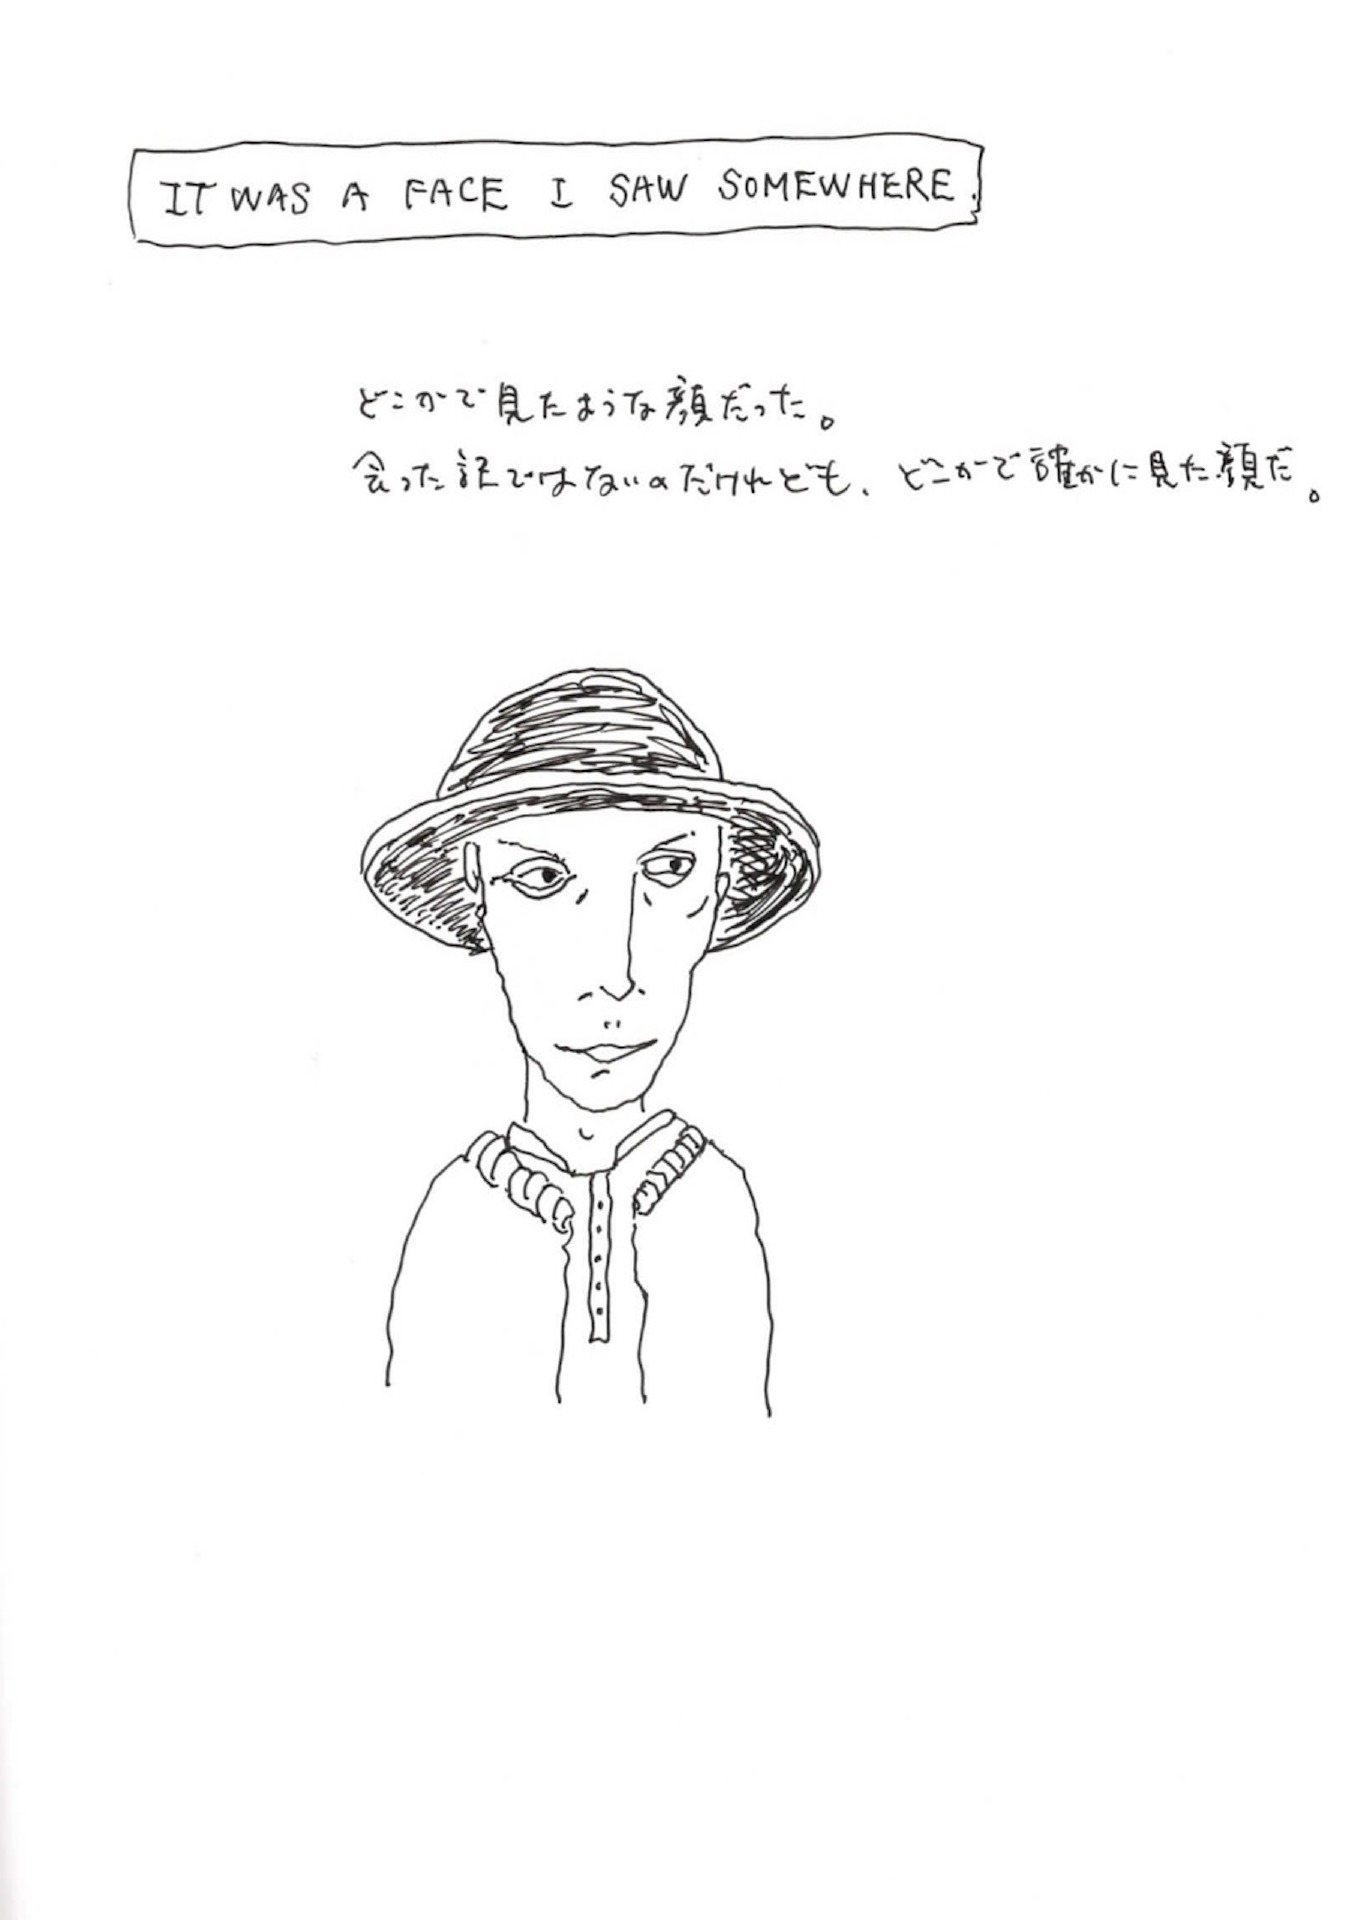 IT WAS A FACE I SAW SOMEWHERE.
どこかで見たような顔だった。
会った訳ではないのだけれども、どこかで確かに見た顔だ。